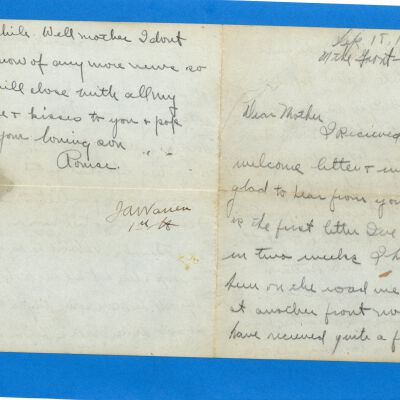 while. Well mother I dont
know of any more news so
will close with all my
love + kisses to you + pop
your loving son
J A Warren
1st
Sep 15, 1
At the Front
Dear Mother
I Recieved
welcome letter +
glad to hear from you
is the first letter Ive
in two weeks I h
been on the road
at another front now
have recieved quite a f